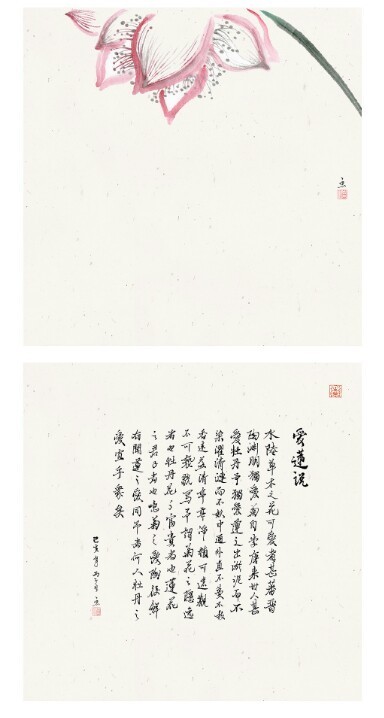 愛蓮説
水陸草木之花可愛者甚蕃晉
陶淵明獨愛菊自李唐来世人甚
愛牡丹予獨愛蓮之出淤泥而不
染濯清漣而不妖中通外直不蔓不枝
香遠益清亭亭净植可遠觀
不可褻翫焉予謂菊花之隱逸
者也牡丹花之富貴者也蓮花
之君子者也噫菊之愛陶後鮮
有聞蓮之愛同予者何人牡丹之
愛宜乎衆矣
己亥